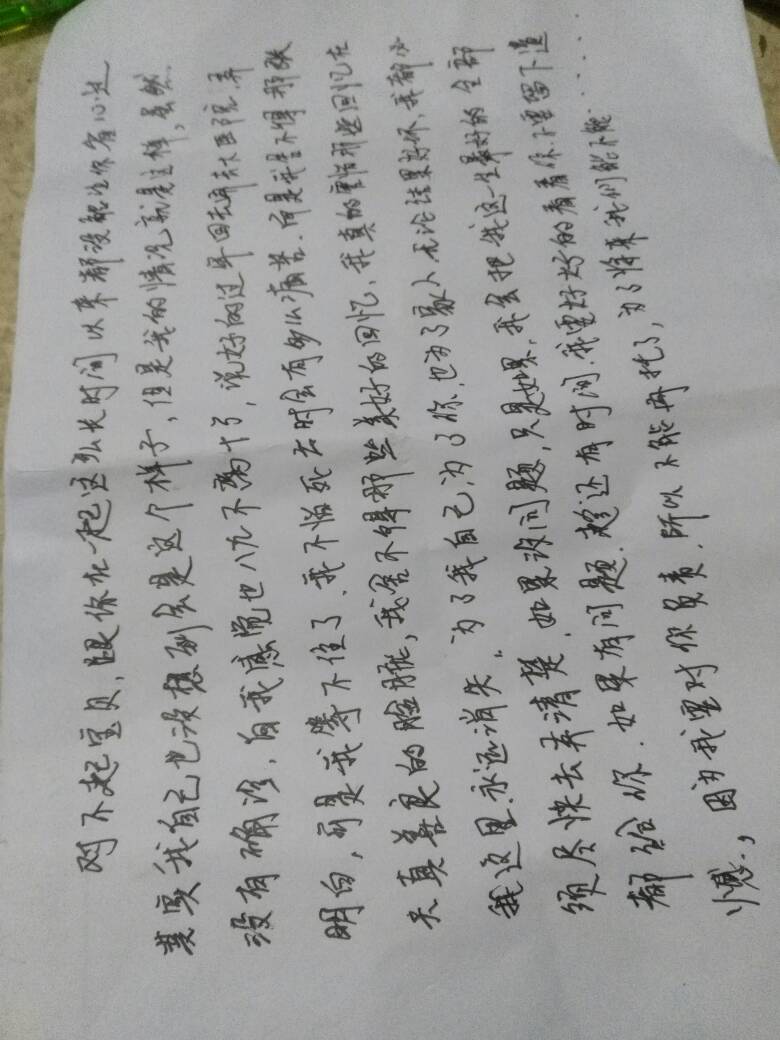 对不起宝贝，跟你在一起这么长时间以来都没都让你省心过
其实我自己也没想到会是这个样子，但是我的情况就是这样，虽然
没有确诊，自我感觉也八九不离十了，说好的过年回去再去大医院弄
明白，可是我等不住了、我不怕死去时会有多么痛苦．而是我舍不得那张
天真善良的脸庞，我舍不得那些美好的回忆、我真的害怕那些回忆在
我这里永远消失。为了我自己，为了你，也为了家人，无论结果好坏、我都必
须尽快去弄清楚．如果没问题，只是如果、我会把我这一生最好的全部
都给你．如果有问题．趁还有时间．我要好好的看看你、不要留下遗
憾．，因为我要对你负责．所以不能再拖了，为了将来我们能不能......